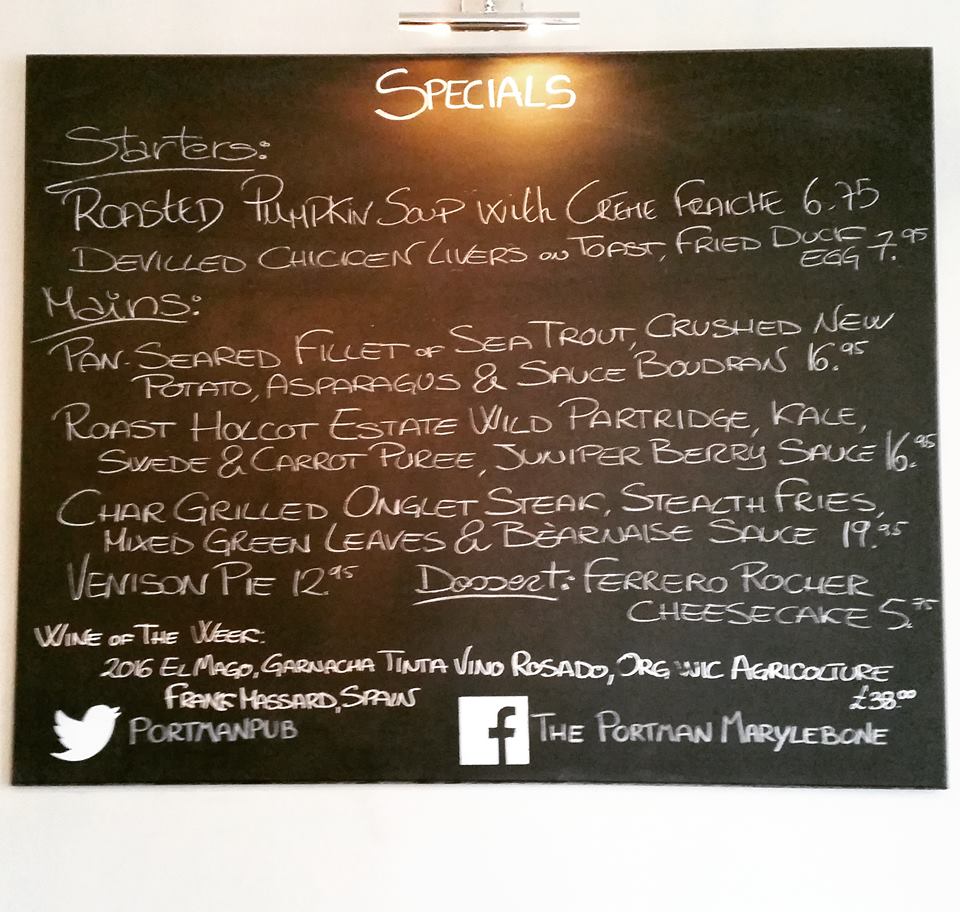 SPECIALS
Starters:
ROASTED PUMPKIN SOUP with CRÈME FRAICHE 6.75
DEVILLED CHICKEN LIVERS on TOAST, FRIED DUCK
EGG 7.95
Mains:
PAN-SEARED FILLET of SEA TROUT, CRUSHED NEW
POTATO, ASPARAGUS & SAUCE BOUDRAN 16.95
ROAST HOLCOT ESTATE WILD PARTRIDGE, KALE,
SWEDE & CARROT PUREE, JUNIPER BERRY SAUCE 16.95
CHAR GRILLED ONGLET STEAK, STEALTH FRIES,
MIXED GREEN LEAVES & BÈARNAISE SAUCE 19.95
VENISON PIE 12.95 Dessert: FERRERO ROCHER
CHEESECAKE 5.75
WINE OF THE WEEK:
2016 EL MAGO, GARNACHA TINTA VINO ROSADO, AGRICOLTURE
FRANK MASSARD, SPAIN £38.00
PORTMANPUB f THE PORTMAN MARYLEBONE